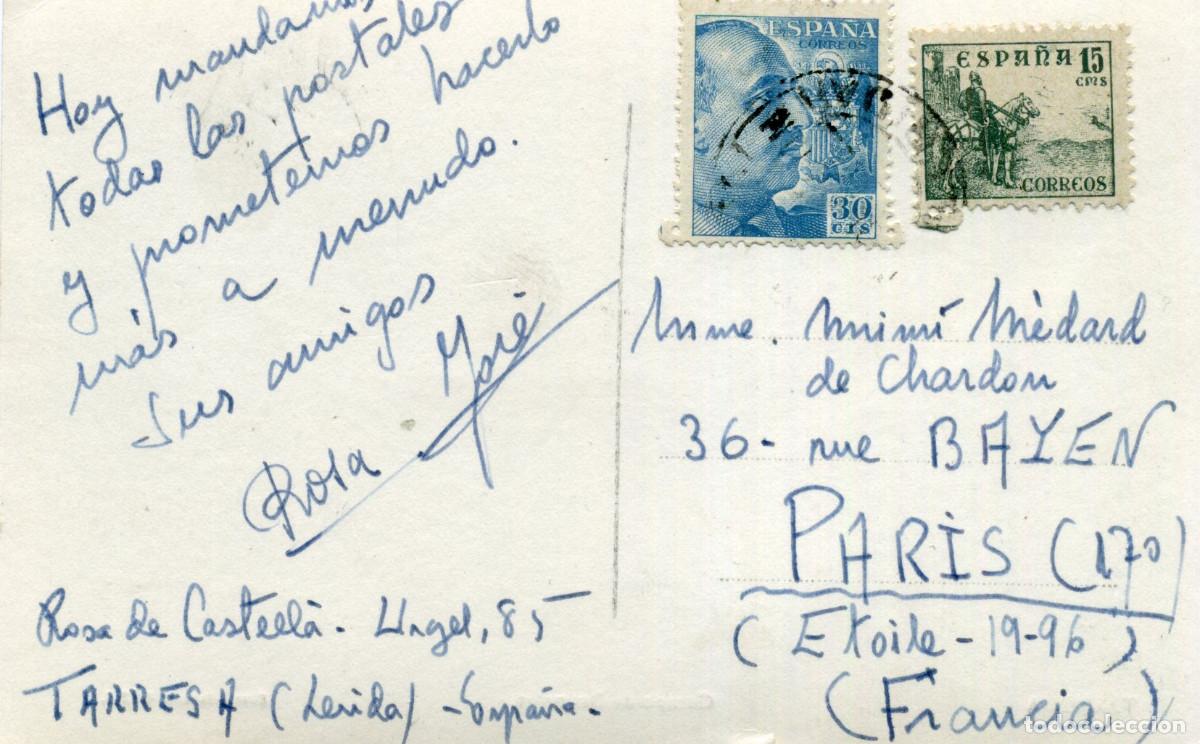 Hoy mandamos
todas las postales
y prometemos hacerlo
más a menudo.
Sus amigos
Rosa José
Rosa de Castellà - Urgel, 85
TARREGA (Lerida) - España -
ESPAÑA
CORREOS
30
CTS
ESPAÑA 15
CMS
CORREOS
Mme. Mimí Mèdard
de Chardon
36 - rue BAYEN
PARIS (17º)
(Etoile - 19-96)
(Francia)
todocoleccion